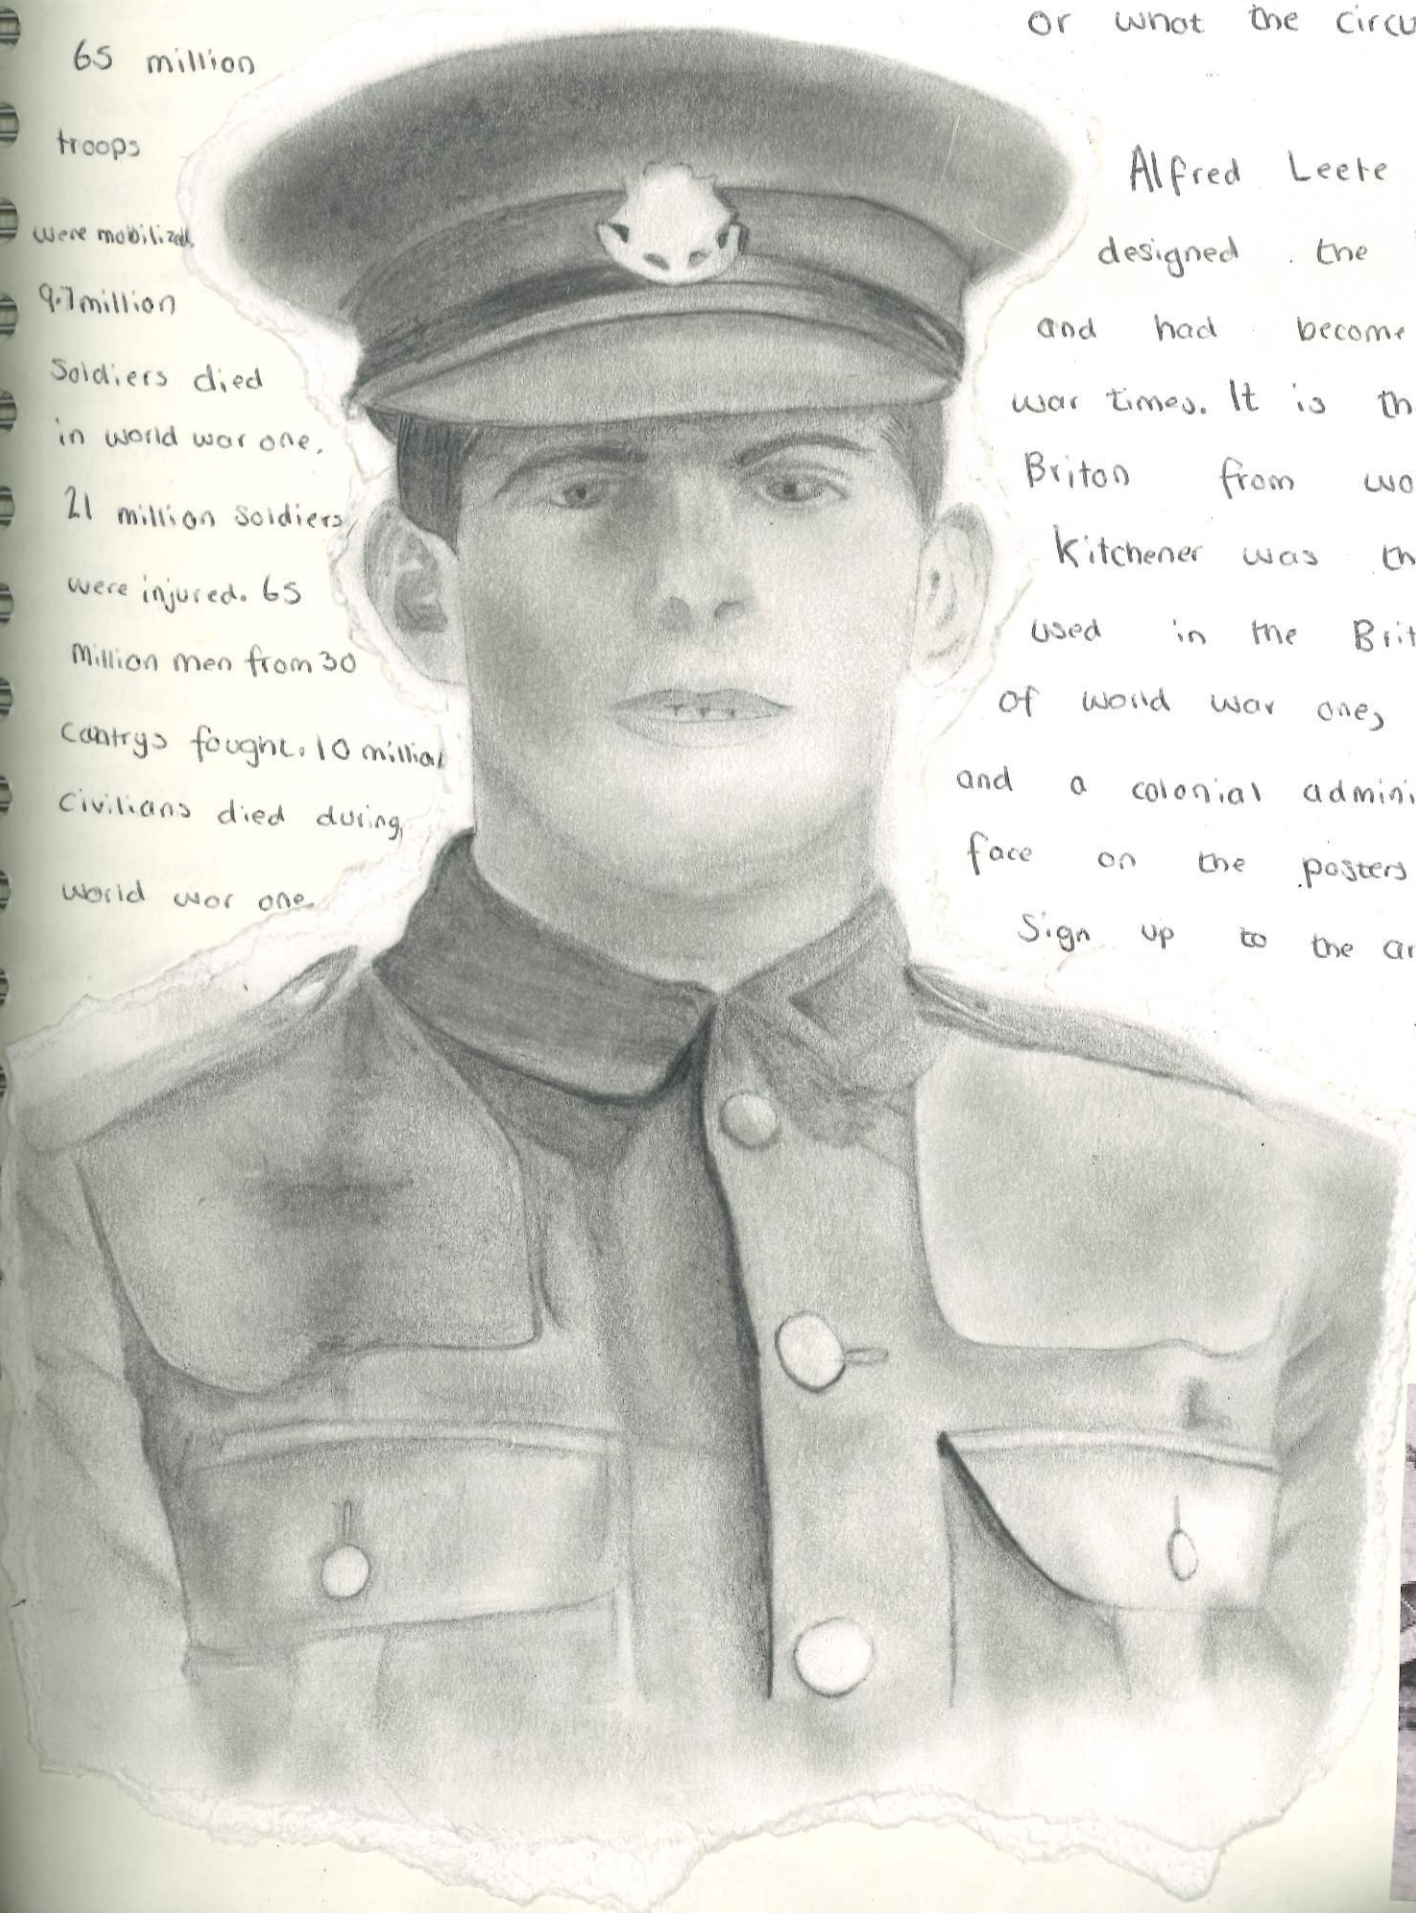 65 million
troops
were mobilized.
9.7million
Soldiers died
in world war one.
21 million Soldiers
were injured. 65
Million men from 30
Contrys fought. 10 million
Civilians died during
world war one.
or what the circu
Alfred Leete
designed the
and had become
war times. It is th
Briton from wo
Kitchener was th
used in the Brit
of world war one,
and a colonial admini
face on the posters
Sign up to the ar